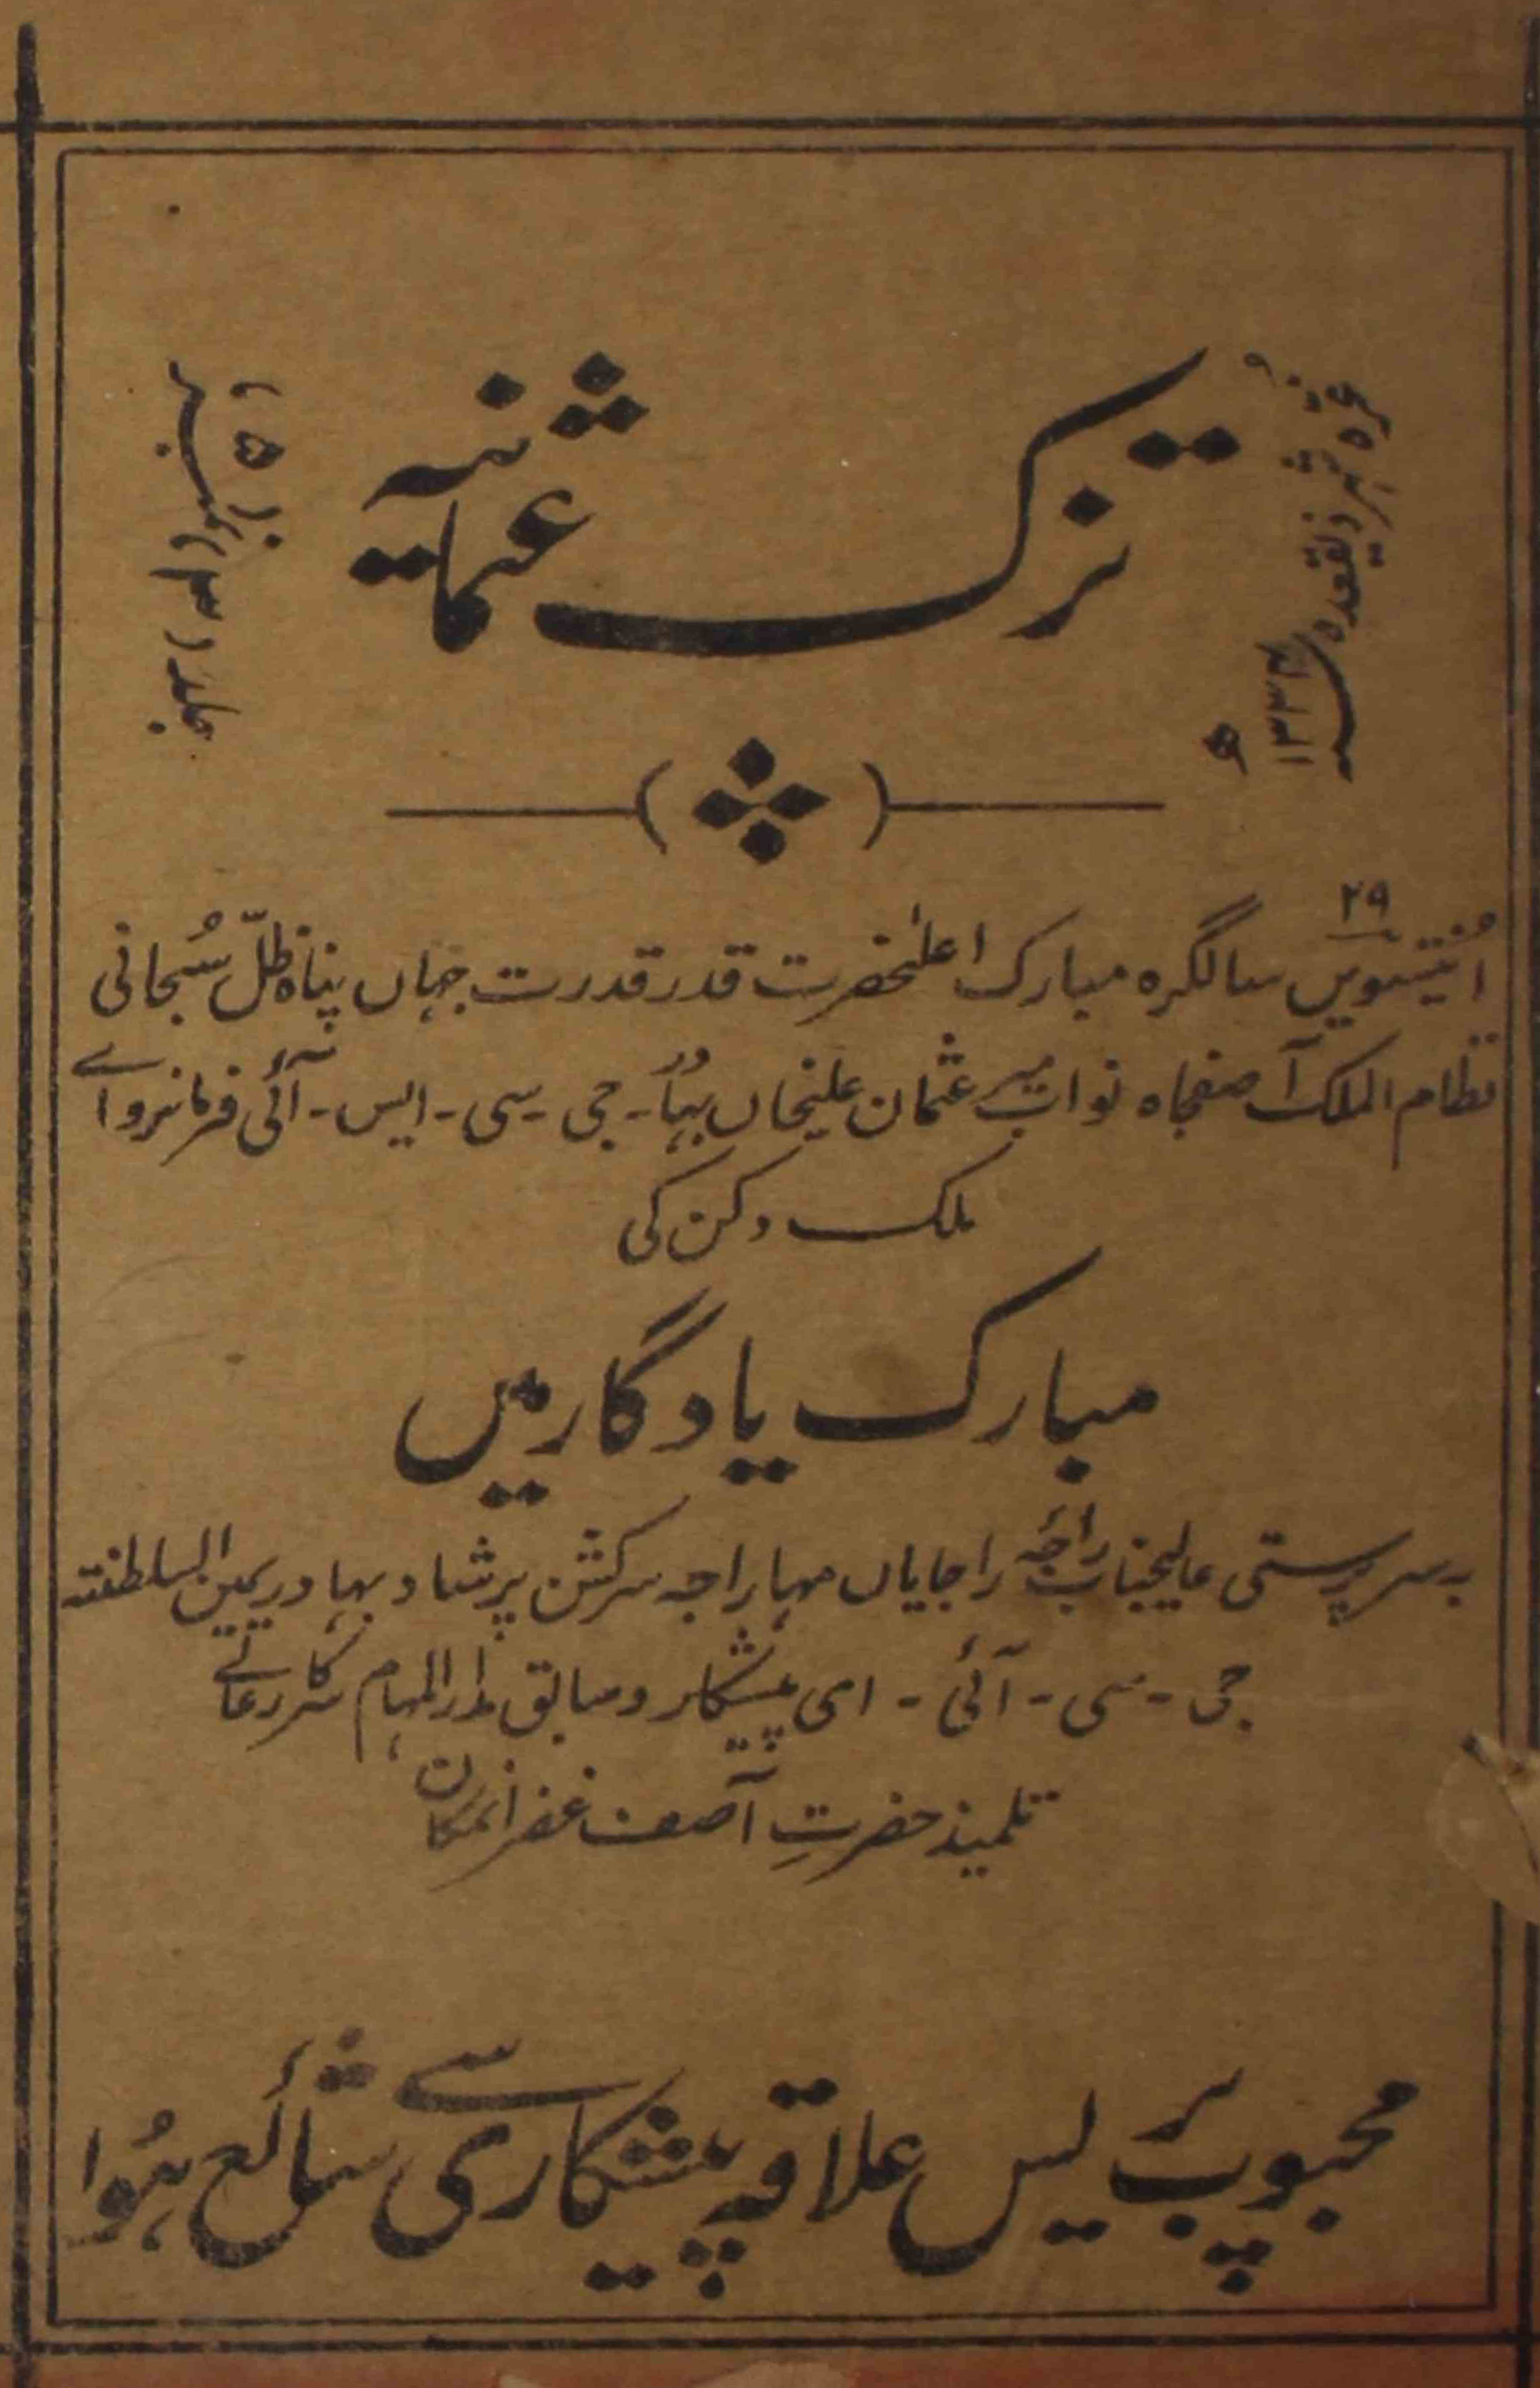 غرّہ شہر ذیقعدہ ۱۳۳۴ھ
تزک عثمانیہ
جلد (۳) نمبر (۵)
۲۹
اُنتیسویں سالگرہ مبارک اعلیٰحضرت قدر قدرت جہاں پناہ ظلّ سُبحانی
نظام الملک آصفجاہ نواب میر عثمان علیخاں بہادر - جی - سی - ایس - آئی فرمانروائے
ملک دکن کی
مبارک یادگار میں
بسرپرستی عالیجناب راجۂ راجایاں مہاراجہ سرکشن پرشاد بہادر یمین السلطنتہ
جی - سی - آئی - ای پیشکار و سابق مدارالمہام سرکار عالی
تلمیذ حضرتِ آصف غفرانمکان
محبوب پریس علاقہ پیشکاری سے شائع ہُوا